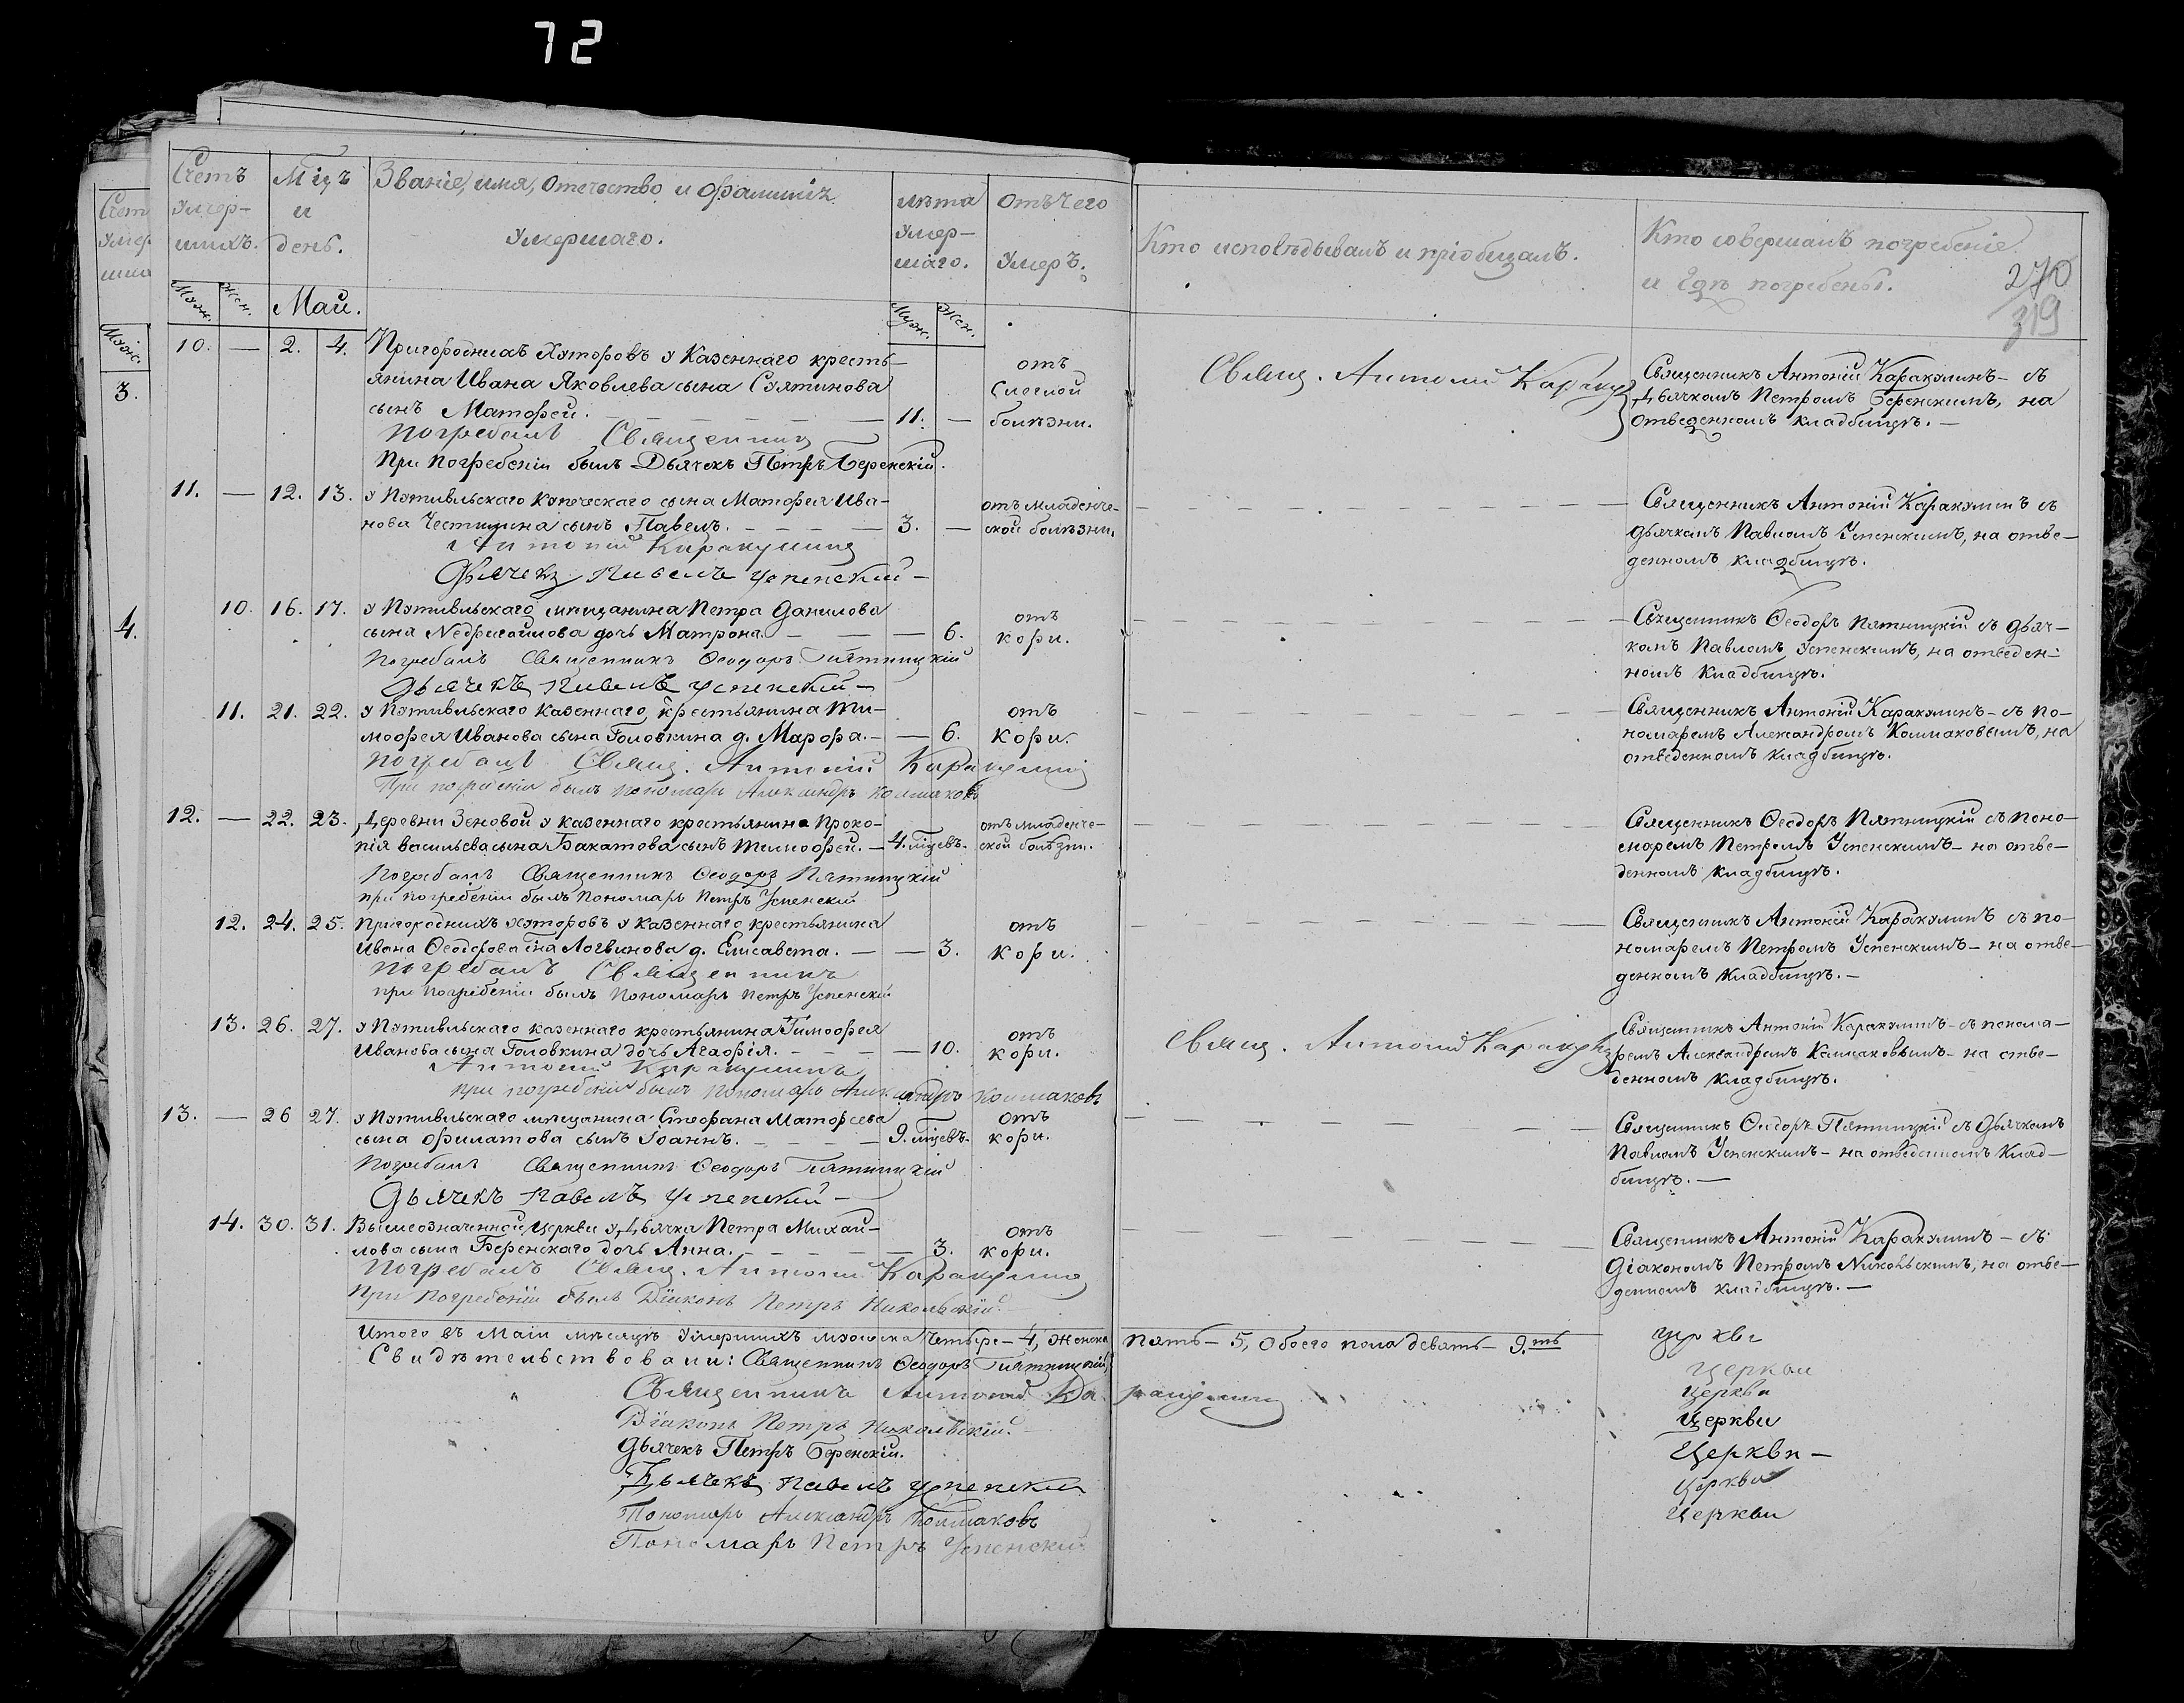 72
Счетъ умер-
шихъ.
Мцъ
и
день.
Званіе, имя, отечество и фамилія
умершаго.
лѣта
умер-
шаго.
отъ чего
умеръ.
Кто исповѣдывалъ и пріобщалъ.
Кто совершалъ погребеніе
и гдѣ погребены.
270
319
Муж. Жен. Май. Муж. Жен.
Муж.
3.
4.
10. — 2. 4. Пригородныхъ Хуторовъ у Казеннаго кресть-
янина Ивана Яковлева сына
сынъ Матфей. — 11. —
отъ
болѣзни.
Погребалъ Священникъ
При погребеніи былъ Дьячекъ Петръ Беренскій.
Свящ. Антоній
Священникъ Антоній Каракулинъ — съ
Дьячкомъ Петромъ Беренскимъ, на
отведенномъ кладбищѣ. —
11. — 12. 13. у Путивльскаго купеческаго сына Матфея Ива-
нова сынъ Павелъ. — 3. —
отъ младенче-
ской болѣзни.
Антоній Каракулинъ
Дьячекъ Павелъ Успенскій —
Священникъ Антоній Каракулинъ съ
дьячкомъ Павломъ Успенскимъ, на отве-
денномъ кладбищѣ.
10. 16. 17. у Путивльскаго мѣщанина Петра Данилова
сына Недригайлова дочь Матрона. — 6.
отъ
кори.
Погребалъ Священникъ Ѳеодоръ Пятницкій
Дьячекъ Павелъ Успенскій —
Священникъ Ѳеодоръ Пятницкій съ дьяч-
комъ Павломъ Успенскимъ, на отведен-
номъ кладбищѣ.
11. 21. 22. у Путивльскаго казеннаго крестьянина Ти-
моѳея Иванова сына Головкина д. Марфа. — 6.
отъ
кори.
Погребалъ Свящ. Антоній Каракулинъ
При погребеніи былъ пономарь Александръ Колмаковъ
Священникъ Антоній Каракулинъ — съ по-
номаремъ Александромъ Колмаковымъ, на
отведенномъ кладбищѣ.
12. — 22. 23. Деревни Зеновой у казеннаго крестьянина Проко-
пія Васильева сына Бакатова сынъ Тимоѳей. — 4. мцевъ.
отъ младенче-
ской болѣзни.
Погребалъ Священникъ Ѳеодоръ Пятницкій
при погребеніи былъ Пономарь Петръ Успенскій
Священникъ Ѳеодоръ Пятницкій съ поно-
маремъ Петромъ Успенскимъ — на отве-
денномъ кладбищѣ.
12. 24. 25. Пригородныхъ хуторовъ у казеннаго крестьянина
Ивана Ѳеодорова сна Логвинова д. Елисавета. — 3.
отъ
кори.
Погребалъ Священникъ
при погребеніи былъ Пономарь Петръ Успенскій
Священникъ Антоній Каракулинъ съ по-
номаремъ Петромъ Успенскимъ — на отве-
денномъ кладбищѣ. —
13. 26. 27. у Путивльскаго казеннаго крестьянина Тимоѳея
Иванова сына Головкина дочь Агафія. — 10.
отъ
кори.
Антоній Каракулинъ
при погребеніи былъ Пономарь Александръ Колмаковъ
Свящ. Антоній Каракулинъ
Священникъ Антоній Каракулинъ — съ понома-
ремъ Александромъ Колмаковымъ — на отве-
денномъ кладбищѣ.
13. — 26 27. у Путивльскаго мѣщанина Стефана Матфеева
сына Филатова сынъ Іоаннъ. — 9. мцевъ.
отъ
кори.
Погребалъ Священникъ Ѳеодоръ Пятницкій
Дьячекъ Павелъ Успенскій —
Священникъ Ѳеодоръ Пятницкій съ дьячкомъ
Павломъ Успенскимъ — на отведенномъ клад-
бищѣ. —
14. 30. 31. Вышеозначенной церкви у Дьячка Петра Михай-
лова сына Беренскаго дочь Анна. — 3.
отъ
кори.
Погребалъ Свящ. Антоній Каракулинъ
При погребеніи былъ Діаконъ Петръ Никольскій.
Священникъ Антоній Каракулинъ — съ
Діакономъ Петромъ Никольскимъ, на отве-
денномъ кладбищѣ. —
Итого въ Маіи мѣсяцѣ умершихъ мужеска четыре — 4, женска пять — 5, обоего пола девять — 9.ть
Свидѣтельствовали: Священникъ Ѳеодоръ Пятницкій
Священникъ Антоній Каракулинъ
Діаконъ Петръ Никольскій.
Дьячекъ Петръ Беренскій.
Дьячекъ Павелъ Успенскій
Пономарь Александръ Колмаковъ
Пономарь Петръ Успенскій
церкви
церкви
церкви
церкви
церкви —
церкви
церкви